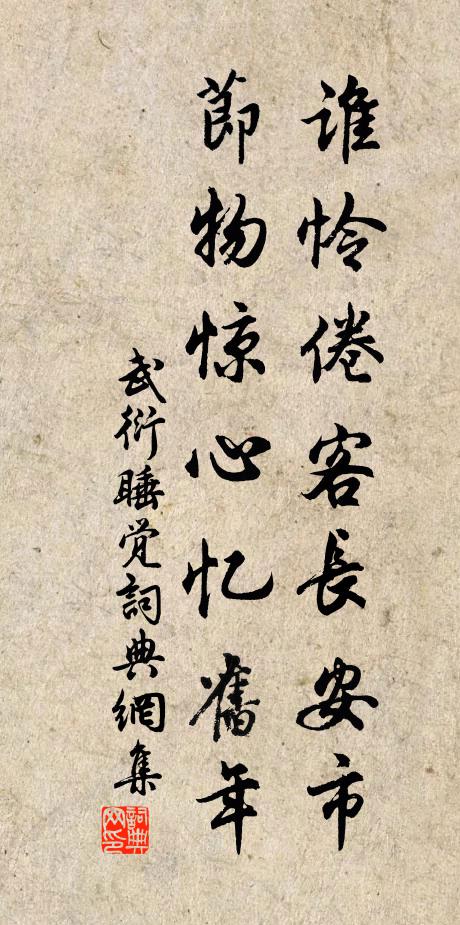 谁怜倦客长安市
節物惊心忆舊年
武衍睡觉詞典網集
詞典网印